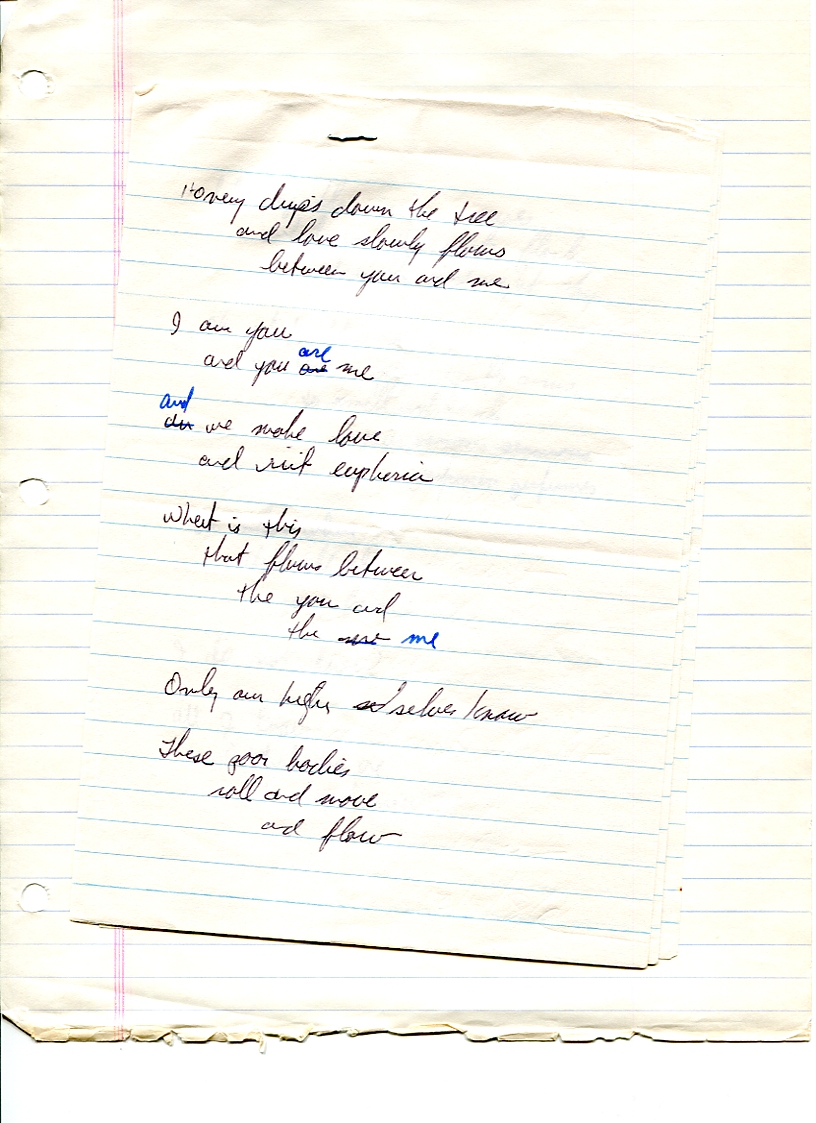 Honey drips down the tree
and love slowly flows
between you and me
I am you
and you are me
and we make love
and visit euphoria
What is this
that flows between
the you and
the me
Only our higher selves know
These poor bodies
roll and move
and flow